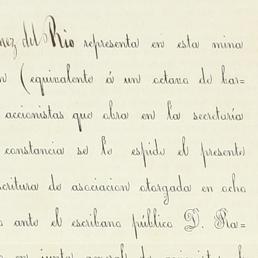 nez del Rio representa en esta mina
n (equivalente á un octavo de bar=
accionistas que obra en la secretaría
constancia se le espide el presente
scritura de asociacion otorgada en ocho
o ante el escribano público D. Ra=